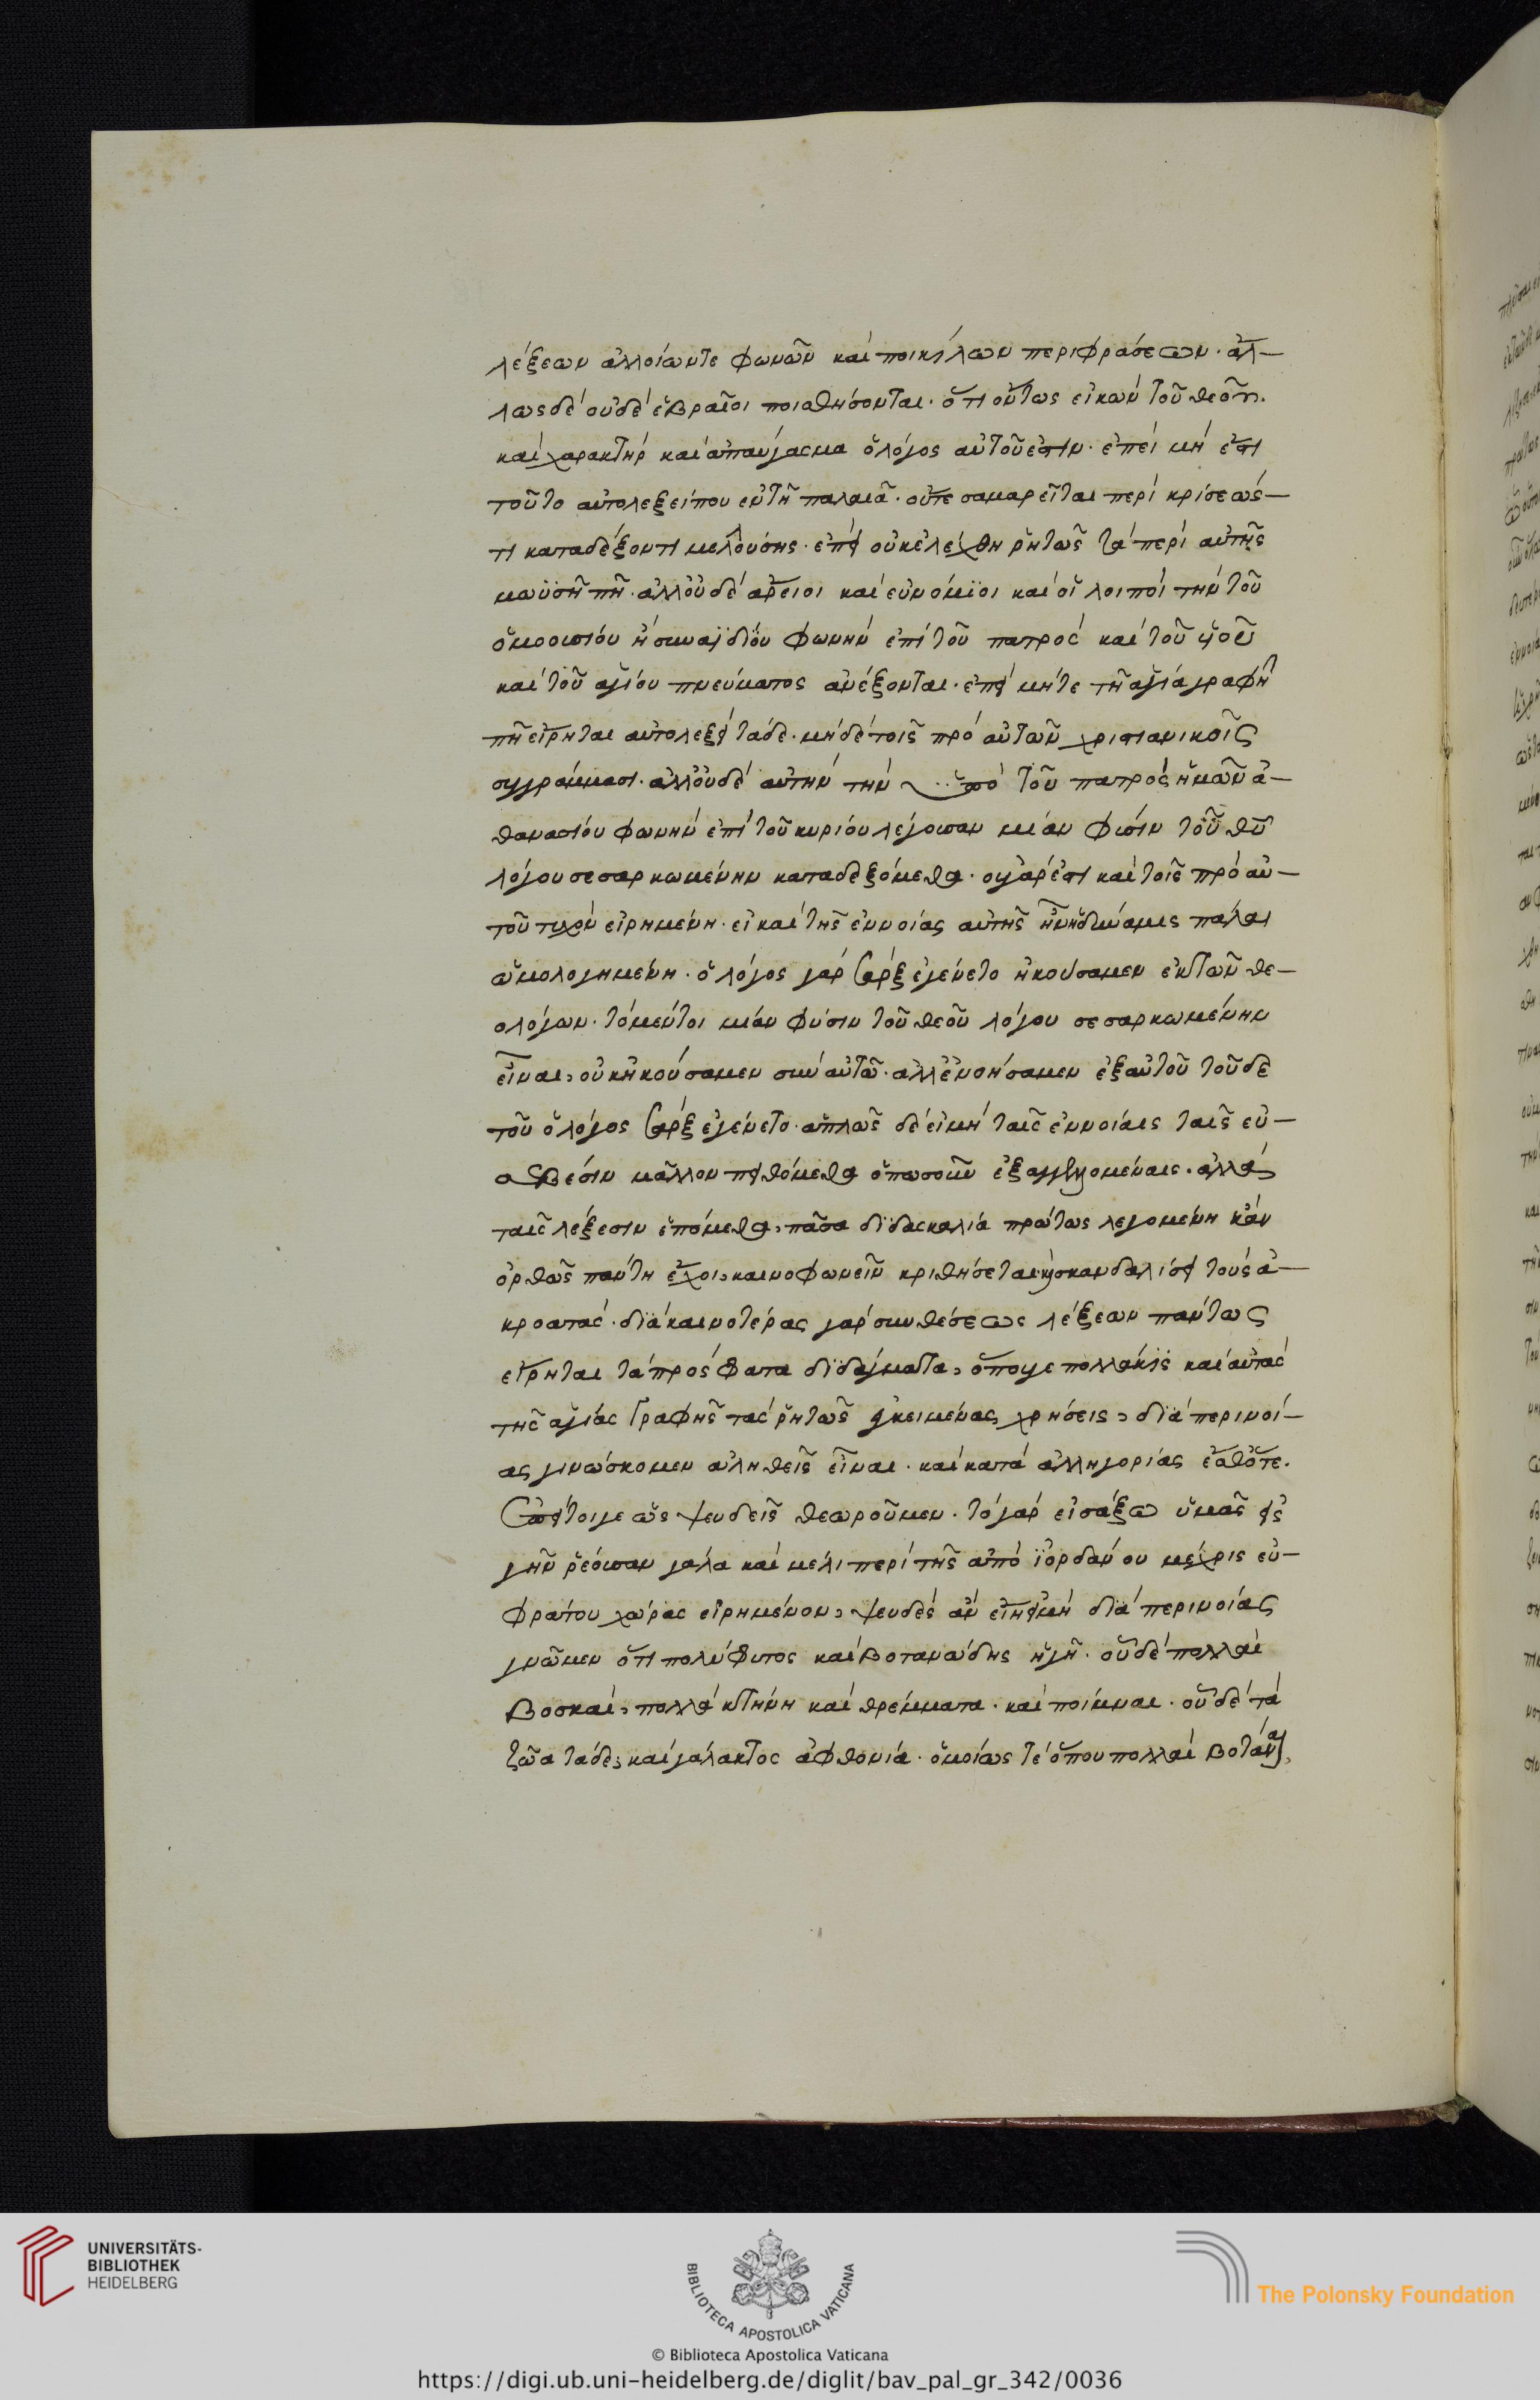 λέξεων ἀλλοίων τε φωνῶν καὶ ποικίλων περιφράσεων. ἀλ-
λως δὲ οὐδὲ ἑβραῖοι ποιαθήσονται. ὅτι οὕτως εἰκὼν τοῦ θεοῦ
καὶ χαρακτὴρ καὶ ἀπαύγασμα ὁ λόγος αὐτοῦ ἐστιν. ἐπεὶ μὴ ἔστι
τοῦτο αὐτολεξεί που ἐν τῇ παλαιᾷ. οὔτε σαμαρεῖται περὶ κρίσεώς
τι καταδέξονται μελλούσης. ἐπεὶ οὐκ ἐλέχθη ῥητῶς τὰ περὶ αὐτῆς
μωϋσῆ πῆ. ἀλλ' οὐδὲ ἄρειοι καὶ εὐνόμιοι καὶ οἱ λοιποὶ τὴν τοῦ
ὁμοουσίου ἢ συναϊδίου φωνὴν ἐπὶ τοῦ πατρὸς καὶ τοῦ υἱοῦ
καὶ τοῦ ἁγίου πνεύματος ἀνέξονται. ἐπεὶ μήτε τῇ ἁγίᾳ γραφῇ
πῆ εἴρηται αὐτολεξεὶ τάδε. μηδὲ τοῖς πρὸ αὐτῶν χριστιανικοῖς
συγγράμμασι. ἀλλ' οὐδὲ αὐτὴν τὴν ὑπὸ τοῦ πατρὸς ἡμῶν ἀ-
θανασίου φωνὴν ἐπὶ τοῦ κυρίου λέγουσαν μίαν φύσιν τοῦ θῦ
λόγου σεσαρκωμένην καταδεξόμεθα. οὐ γάρ ἐστι καὶ τοῖς πρὸ αὐ-
τοῦ τυχὸν εἰρημένη. εἰ καὶ τῆς ἐννοίας αὐτῆς ἦν ἡ δύναμις πάλαι
ὡμολογημένη. ὁ λόγος γὰρ σὰρξ ἐγένετο ἠκούσαμεν ἐκ τῶν θε-
ολόγων. τὸ μέντοι μίαν φύσιν τοῦ θεοῦ λόγου σεσαρκωμένην
εἶναι, οὐκ ἠκούσαμεν σὺν αὐτῷ. ἀλλ' ἐνοήσαμεν ἐξ αὐτοῦ τοῦδε
τοῦ ὁ λόγος σὰρξ ἐγένετο. ἁπλῶς δὲ εἰ μὴ ταῖς ἐννοίαις ταῖς εὐ-
σεβέσιν μᾶλλον πειθόμεθα ὁπωσοῦν ἐξαγγελλομέναις. ἀλλὰ
ταῖς λέξεσιν ἑπόμεθα, πᾶσα διδασκαλία πρώτως λεγομένη κἂν
ὀρθῶς πάντη ἔχοι, καινοφωνεῖν κριθήσεται καὶ σκανδαλίσει τοὺς ἀ-
κροατάς. διὰ καινοτέρας γὰρ συνθέσεως λέξεων πάντως
εἴρηται τὰ πρόσφατα διδάγματα, ὅπουγε πολλάκις καὶ αὐτὰς
τῆς ἁγίας γραφῆς τὰς ῥητῶς ἐγκειμένας χρήσεις, διὰ περινοί-
ας γινώσκομεν ἀληθεῖς εἶναι. καὶ κατὰ ἀλληγορίας ἔσθ' ὅτε.
ἐπεί τοιγε ὡς ψευδεῖς θεωροῦμεν. τὸ γὰρ εἰσάξω ὑμᾶς εἰς
γῆν ῥέουσαν γάλα καὶ μέλι περὶ τῆς ἀπὸ ἰορδάνου μέχρις εὐ-
φράτου χώρας εἰρημένον, ψευδὲς ἂν εἴη εἰ μὴ διὰ περινοίας
γνῶμεν ὅτι πολύφυτος καὶ βοτανώδης ἡ γῆ. οὗ δὲ πολλαὶ
βοσκαί, πολλὰ κτήνη καὶ θρέμματα. καὶ ποίμναι. οὗ δὲ τὰ
ζῶα τάδε, καὶ γάλακτος ἀφθονία. ὁμοίως τὲ ὅπου πολλαὶ βοτάναι,
UNIVERSITÄTS-
BIBLIOTHEK
HEIDELBERG
BIBLIOTECA APOSTOLICA VATICANA
The Polonsky Foundation
© Biblioteca Apostolica Vaticana
https://digi.ub.uni-heidelberg.de/diglit/bav_pal_gr_342/0036